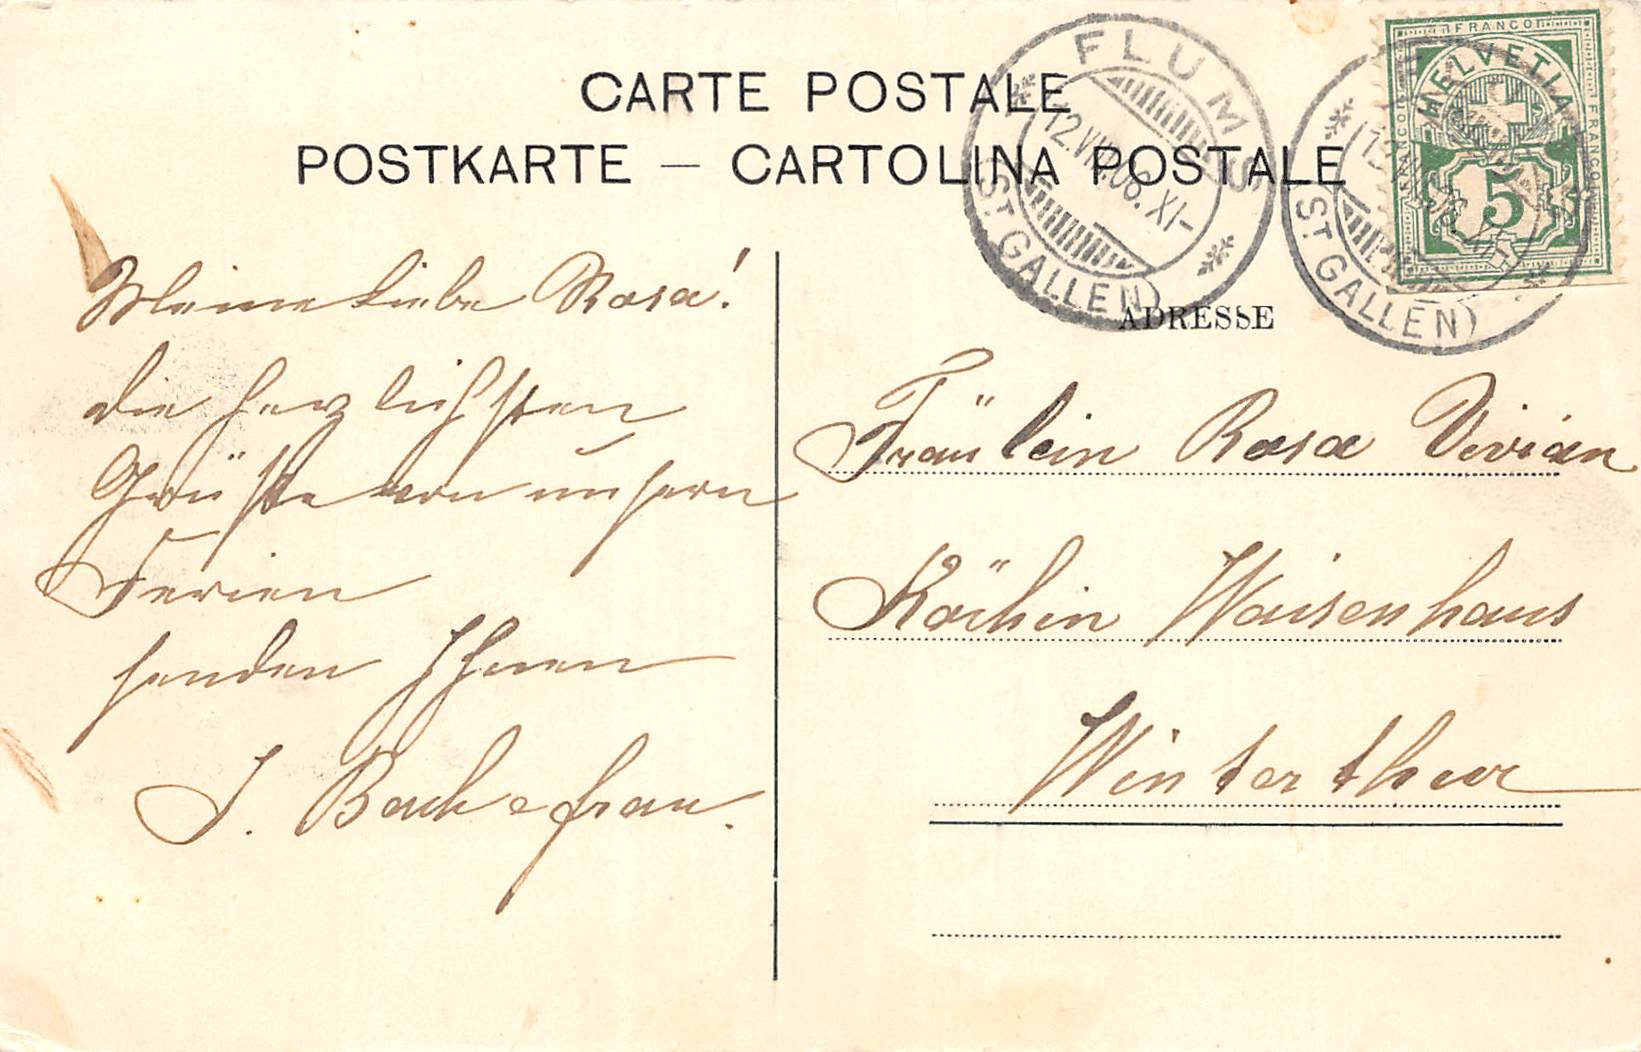 CARTE POSTALE
POSTKARTE — CARTOLINA POSTALE
FLUMS
12.VII.06.XI-
(ST GALLEN)
(ST GALLEN)
FRANCO
FRANCO
FRANCO
HELVETIA
5
ADRESSE
Meine liebe Rosa!
die herzlichsten
Grüße von unsern
Ferien
senden Ihnen
J.
Fräulein Rosa Vivian
Köchin Waisenhaus
Winterthur